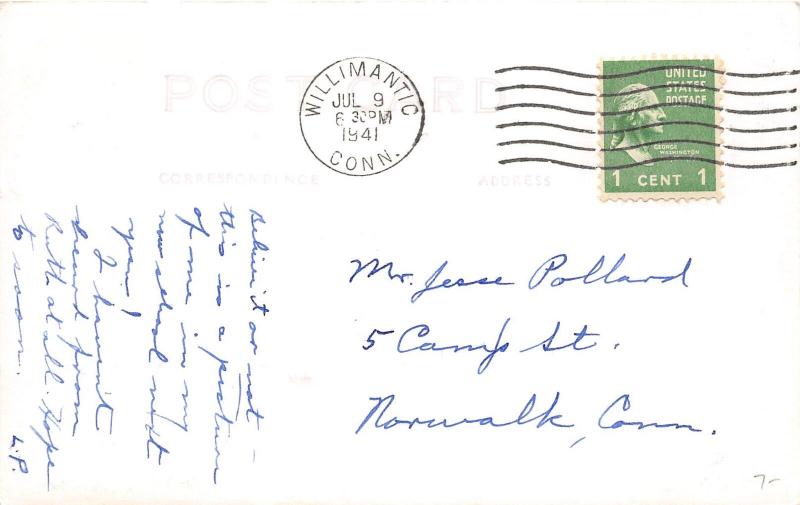 POST CARD
WILLIMANTIC
JUL 9
6 30 PM
1941
CONN.
UNITED
STATES
POSTAGE
GEORGE
WASHINGTON
1 CENT 1
CORRESPONDENCE
ADDRESS
Believe it or not –
this is a picture
of me in my
new school next
year!
I haven't
heard from
Ruth at all. Hope
to soon.
L.P.
Mr. Jesse Pollard
5 Camp St.
Norwalk, Conn.
7-